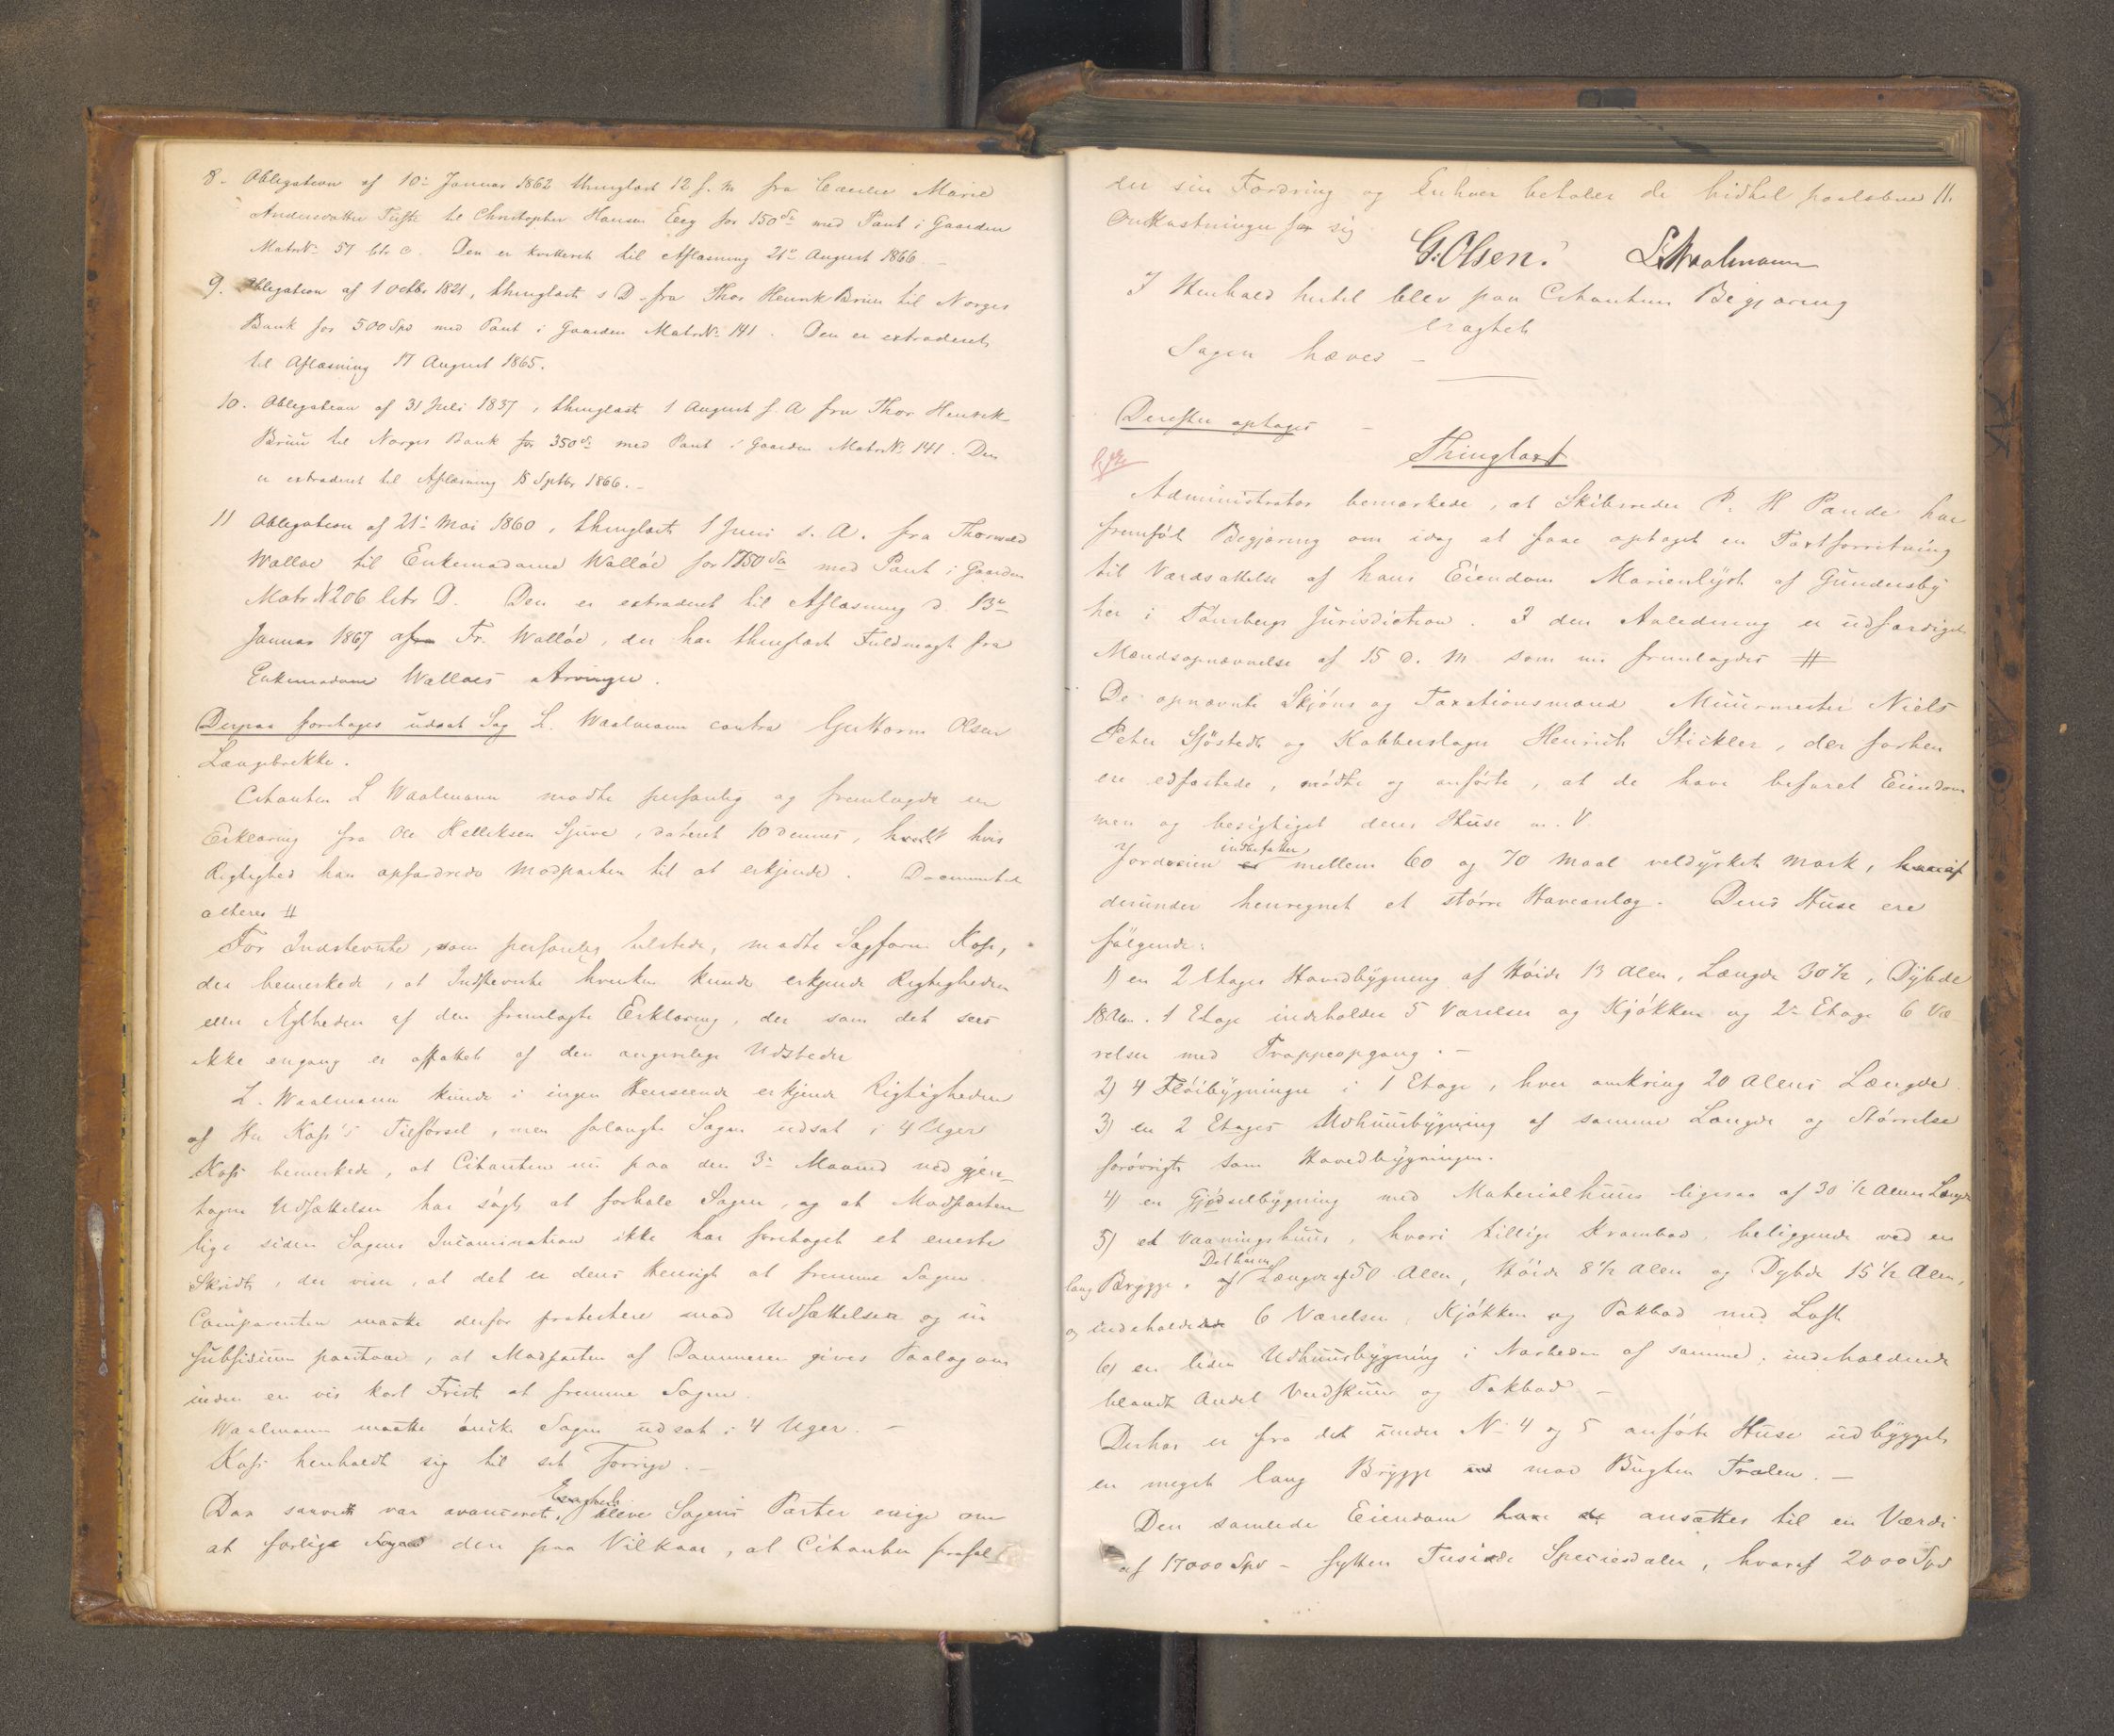 8. Obligation af 10de Januar 1862 thinglæst 12 s. M. fra Cæcilie Marie
Andersdatter Tufte til Christopher Hansen Eeg for 150 Sp med Pant i Gaarden
Matr No 57 ltr c. Den er kvitteret til Aflæsning 21de August 1866. -
9. Obligation af 1 Octbr 1821, thinglæst s D. fra Thor Henrik Bruun til Norges
Bank for 500 Spd med Pant i Gaarden Matr No 141. Den er extraderet
til Aflæsning 17 August 1865.
10. Obligation af 31 Juli 1837, thinglæst 1 August s. A fra Thor Henrik
Bruun til Norges Bank for 350 Sp med Pant i Gaarden Matr No 141. Den
er extraderet til Aflæsning 15 Septbr 1866. -
11 Obligation af 21de Mai 1860, thinglæst 1 Juni s. A. fra Thorvald
Walløe til Enkemadame Walløe for 1750 Sp med Pant i Gaarden
Matr N 206 litr D. Den er extraderet til Aflæsning d. 13de
Januar 1867 af Fr. Walløe, der har thinglæst Fuldmagt fra
Enkemadame Walløes Arvinger.
Derpaa foretages udsat Sag L. Waalmann contra Guttorm Olsen
Langebrekke.
Citanten L Waalmann mødte personlig og fremlagde en
Erklæring fra Ole Helliksen Sjuve, dateret 10 dennes, hvis
Rigtighed han opfordrede Modparten til at erkjende. Documentet
alteres #
For Indstevnte, som personlig tilstede, mødte Sagfører Koss,
der bemerkede, at Indstevnte hverken kunde erkjende Rigtigheden
eller Ægtheden af den fremlagte Erklæring, der som det sees
ikke engang er affattet af den angivelige Udsteder
L. Waalmann kunde i ingen Henseende erkjende Rigtigheden
af Hr Koss's Tilførsel, men forlangte Sagen udsat i 4 Uger
Koss bemerkede, at Citanten nu paa den 3de Maaned ved gjen-
tagne Udsættelser har søgt at forhale Sagen, og at Modparten
lige siden Sagens Incamination ikke har foretaget et eneste
Skridt, der viser, at det er dens Hensigt at fremme Sagen.
Comparenten maatte derfor protestere mod Udsættelsen og in
subsidium paastaae, at Modparten af Dommeren gives Paalæg om
inden en vis kort Frist at fremme Sagen.
Waalmann maatte ønske Sagen udsat i 4 Uger. -
Koss henholdt sig til sit Forrige. -
Eragtet
Da saavidt var avanceret, bleve Sagens Parter enige om
at forlige den paa Vilkaar, at Citanten frafal-
der sin Fordring og Enhver betaler de hidtil paaløbne 11.
Omkostninger for sig.
G. Olsen. L. Waalmann
I Henhold hertil blev paa Citantens Begjæring
eragtet
Sagen hæves -
Derefter optoges -
Thingtaxt
Administrator bemærkede, at Skibsreder P. H Pande har
fremført Begjæring om idag at faae optaget en Taxtforretning
til Værdsættelse af hans Eiendom Marienlyst af Gundersby
her i Tønsbergs Jurisdiction. I den Anledning er udfærdiget
Mandsopnævnelse af 15 d. M. som nu fremlagdes #
De opnævnte Skjøns og Taxationsmænd Muurmester Niels
Peter Sjøstedt og Kobberslager Henrich Stickler, der forhen
ere edfæstede, mødte og anførte, at de have befaret Eiendom
men og besigtiget dens Huse m. V
indbefatter
Jordveien mellem 60 og 70 Maal veldyrket Mark,
derunder henregnet et større Haveanlæg. Dens Huse ere
følgende:
1) en 2 Etages Hovedbygning af Høide 13 Alen, Længde 30½, Dybde
18 Alen. 1 Etage indeholder 5 Værelser og Kjøkken og 2de Etage 6 Væ-
relser med Trappeopgang. -
2) 4 Fløibygninger i 1 Etage, hver omkring 20 Alens Længde.
3) en 2 Etages Udhuusbygning af samme Længde og Størrelse
forøvrigt som Hovedbygningen.
4) en Gjødselbygning med Materialhuus ligesaa af 30½ Alens Længde
5) et Vaaningshuus, hvori tillige Krambod, beliggende ved en
Det har en
lang Brygge. Længde af 50 Alen, Høide 8½ Alen og Dybde 15½ Alen,
og indeholder 6 Værelser, Kjøkken og Pakbod med Loft.
6) en liden Udhuusbygning i Nærheden af samme, indeholdende
blandt Andet Vedskuur og Pakbod -
Derhos er fra det under No 4 og 5 anførte Huse udbygget
en meget lang Brygge mod Bugten Træla. -
Den samlede Eiendom ansættes til en Værdi
af 17000 Spd - sytten Tusinde Speciesdaler, hvoraf 2000 Spd